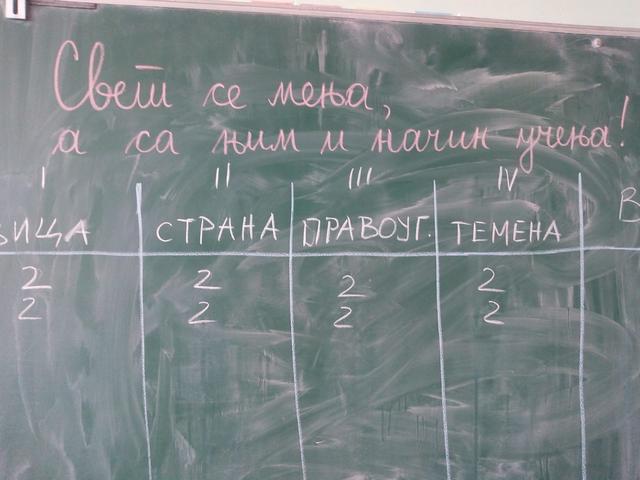 Свет се мења,
а са њим и начин учења!
I II III IV
СТРАНА ПРАВОУГ. ТЕМЕНА
2 2 2 2
2 2 2 2